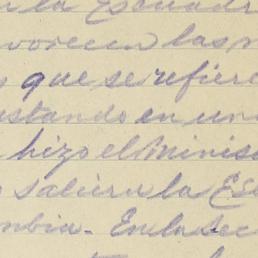 n la Escuadr
vorecen las n
que se refier
estando en un
hizo el Minis
saliera la Es
mbia. En la Sec